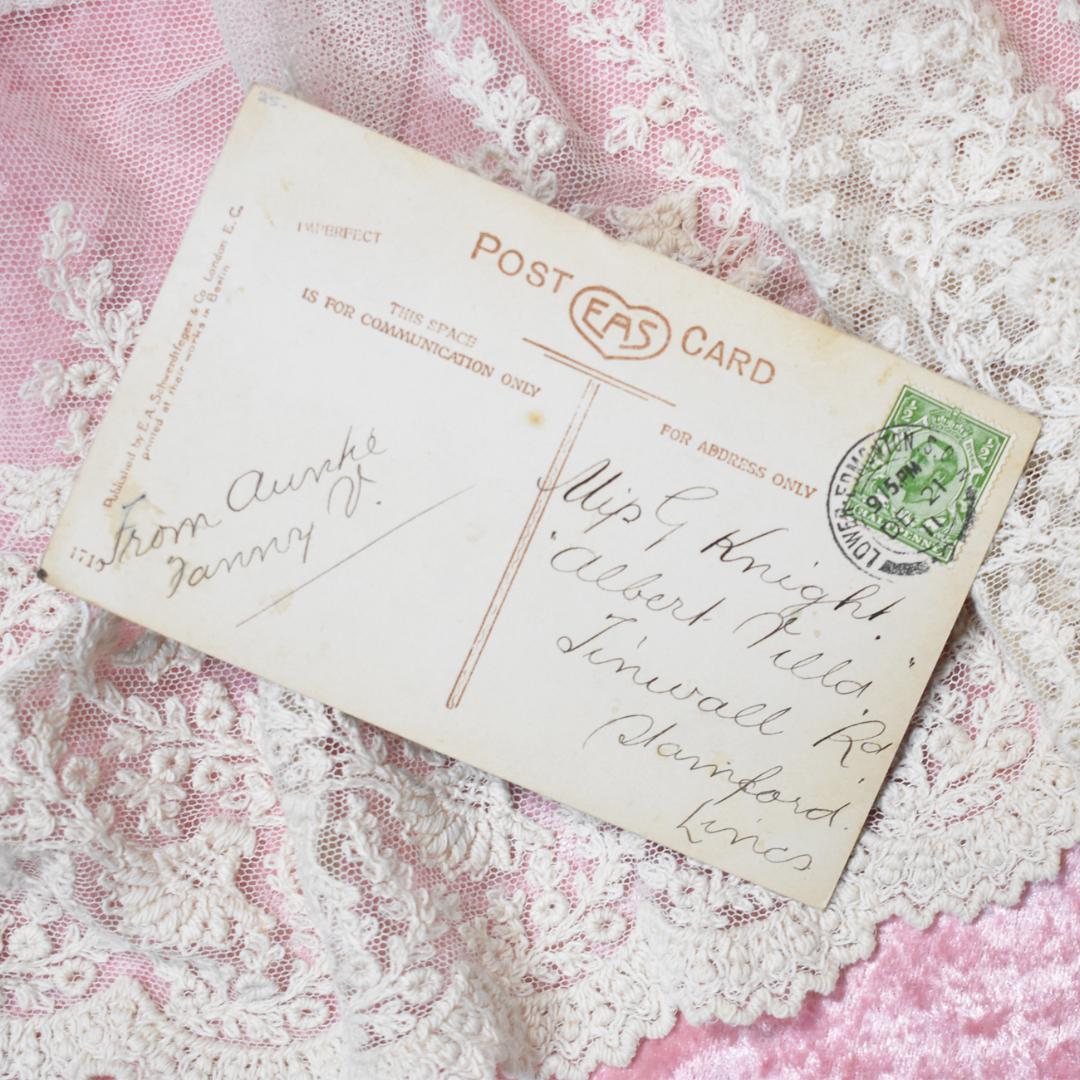 IMPERFECT
POST EAS CARD
THIS SPACE
IS FOR COMMUNICATION ONLY
FOR ADDRESS ONLY
Published by E. A. Schwerdtfeger & Co. London E. C.
printed at their works in Berlin
From Auntie
Fanny V.
Miss G Knight.
"Albert Villa"
Tinwall Rd
Stamford.
Lincs
½ ½
LOWER EDMONTON
9.15 PM
FE 21
11